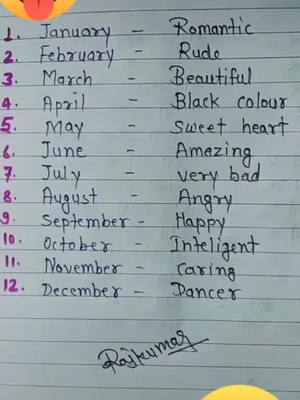 1. January - Romantic
2. February - Rude
3. March - Beautiful
4. April - Black colour
5. May - Sweet heart
6. June - Amazing
7. July - very bad
8. August - Angry
9. September - Happy
10. October - Inteligent
11. November - caring
12. December - Dancer
Rajkumar